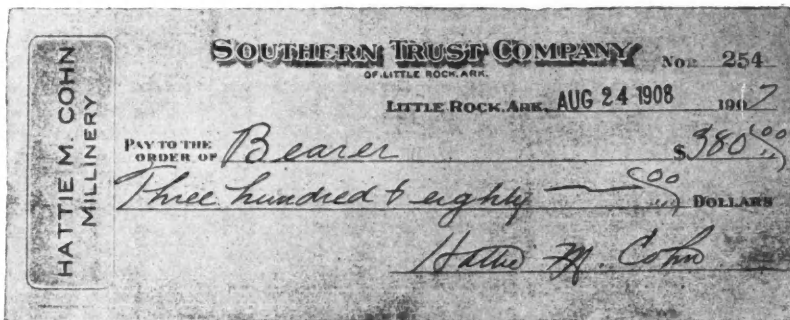 HATTIE M. COHN
MILLINERY
SOUTHERN TRUST COMPANY
OF LITTLE ROCK, ARK.
No. 254
LITTLE ROCK, ARK. AUG 24 1908 1907
PAY TO THE ORDER OF Bearer $380.00
Three hundred & eighty — 00 DOLLARS
Hattie M. Cohn